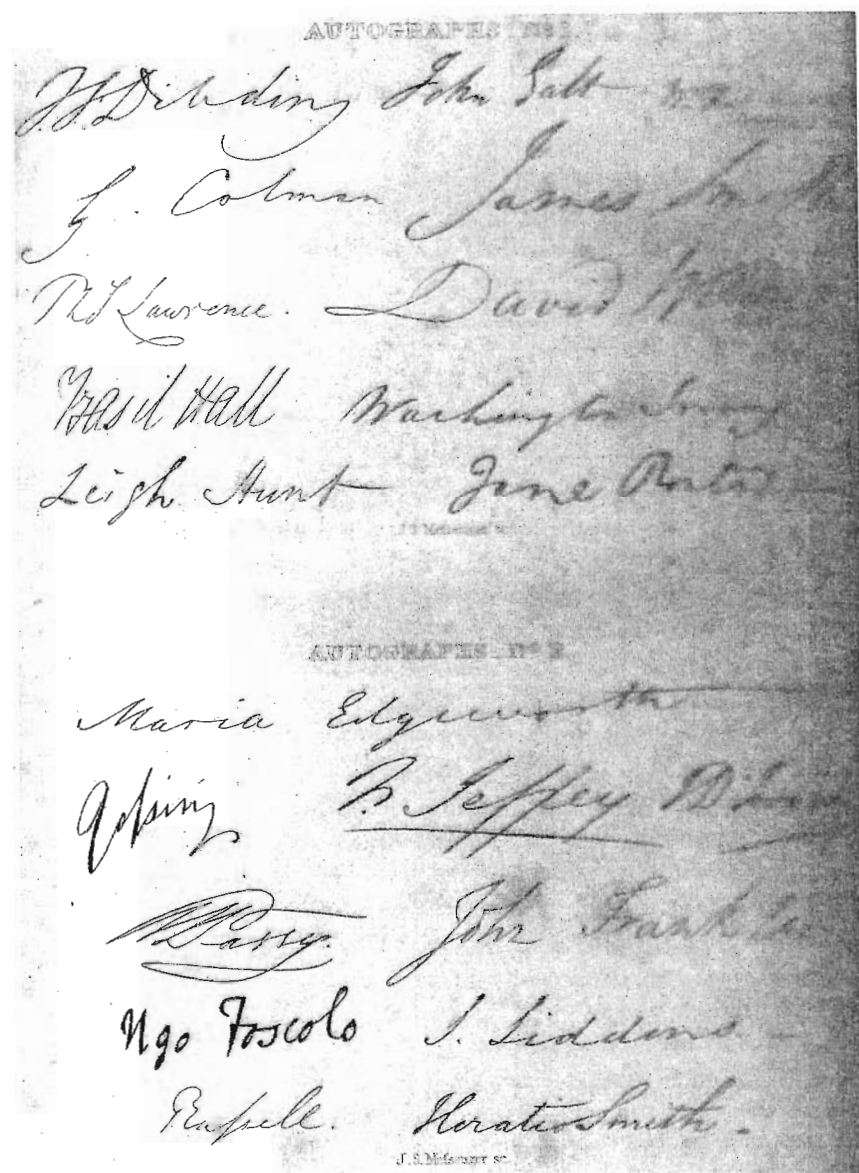 AUTOGRAPHS Nº 1.
T. F. Dibdin John Galt
G. Colman James Smith
Thos Lawrence. David
Basil Hall Washington Irving
Leigh Hunt Jane Porter
AUTOGRAPHS Nº 2.
Maria Edgeworth
F. Jeffrey
W E Parry. John Franklin
Ugo Foscolo S. Siddons
Russell. Horatio Smith.